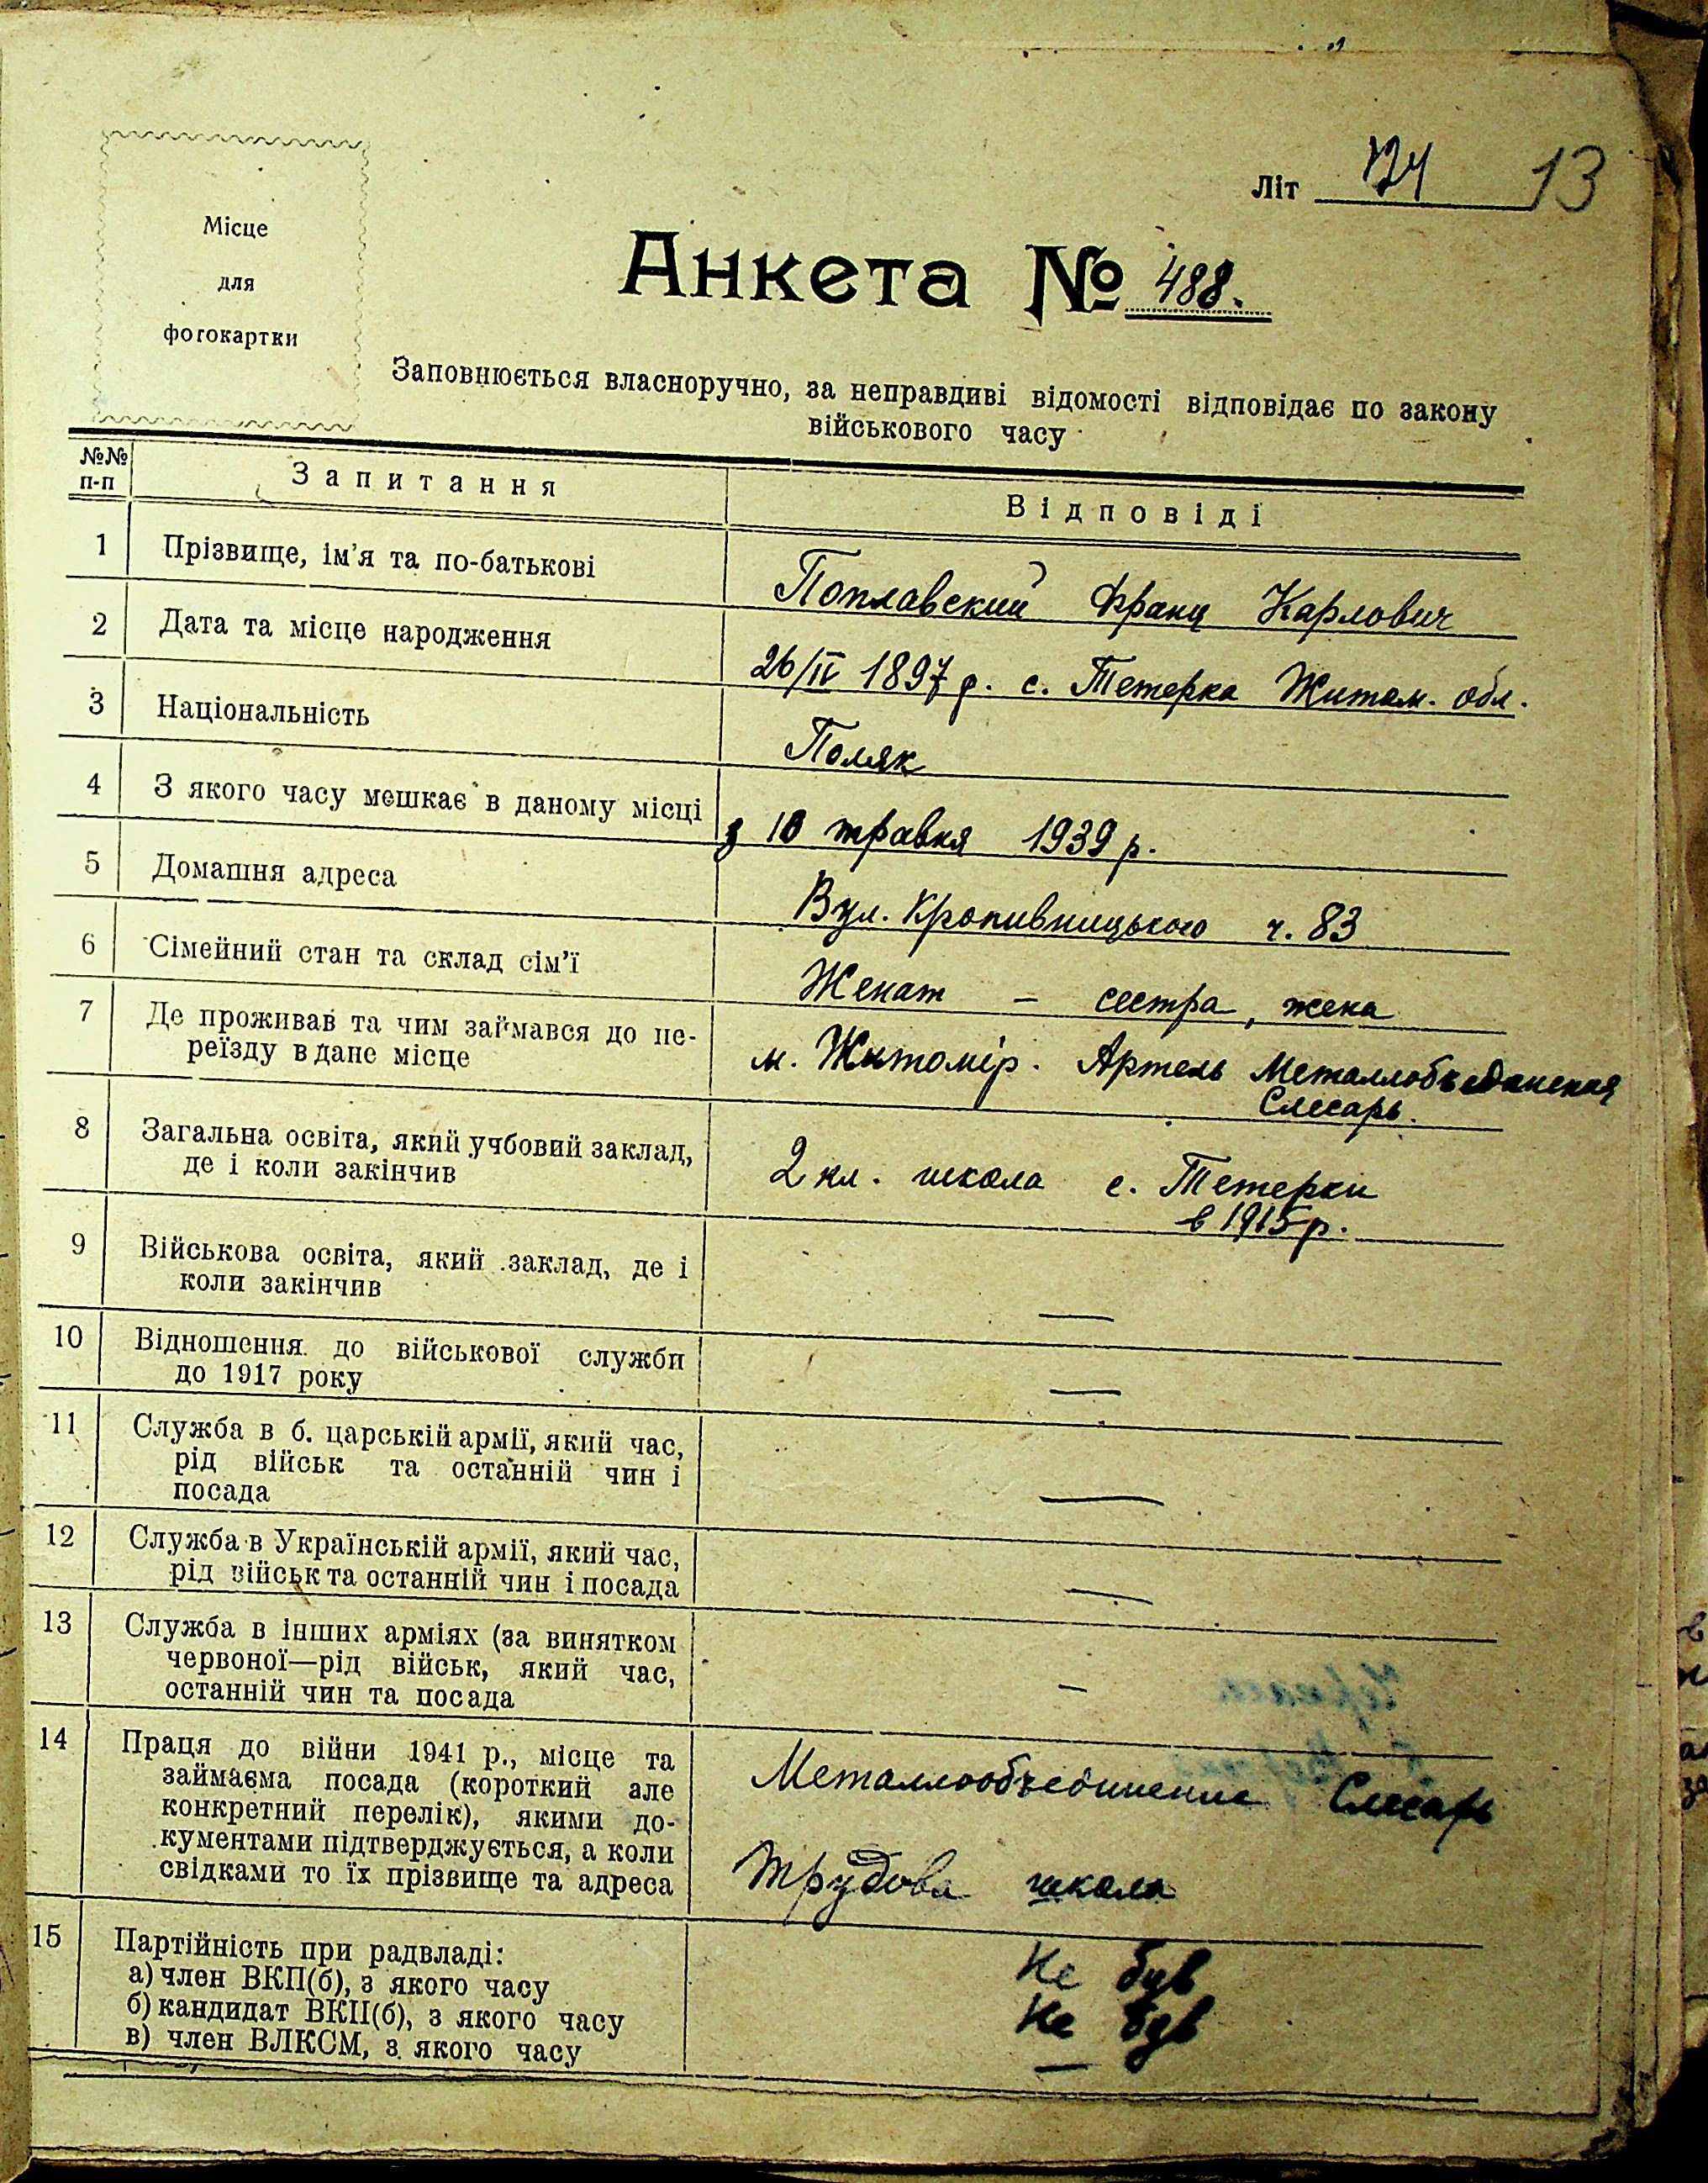 Літ 13
Місце
для
фотокартки
Анкета № 488.
Заповнюється власноручно, за неправдиві відомості відповідає по закону
військового часу
№№ п-п Запитання Відповіді
1 Прізвище, ім'я та по-батькові Поплавский Франц Карлович
2 Дата та місце народження 26/IV 1897 р. с. Тетерка Житом. обл.
3 Національність Поляк
4 З якого часу мешкає в даному місці з 10 травня 1939 р.
5 Домашня адреса Вул. Кропивницького ч. 83
6 Сімейний стан та склад сім'ї Женат – сестра, жена
7 Де проживав та чим займався до пе-
реїзду в дане місце м. Житомір. Артель
Слесарь.
8 Загальна освіта, який учбовий заклад,
де і коли закінчив 2 кл. школа с. Тетерки
в 1915 р.
9 Військова освіта, який заклад, де і
коли закінчив —
10 Відношення до військової служби
до 1917 року —
11 Служба в б. царській армії, який час,
рід військ та останній чин і
посада —
12 Служба в Українській армії, який час,
рід військ та останній чин і посада —
13 Служба в інших арміях (за винятком
червоної—рід військ, який час,
останній чин та посада –
14 Праця до війни 1941 р., місце та
займаєма посада (короткий але
конкретний перелік), якими до-
кументами підтверджується, а коли
свідками то їх прізвище та адреса
Металлообъединение Слесарь
Трудова школа
15 Партійність при радвладі:
а) член ВКП(б), з якого часу Не був
б) кандидат ВКП(б), з якого часу Не був
в) член ВЛКСМ, з якого часу —